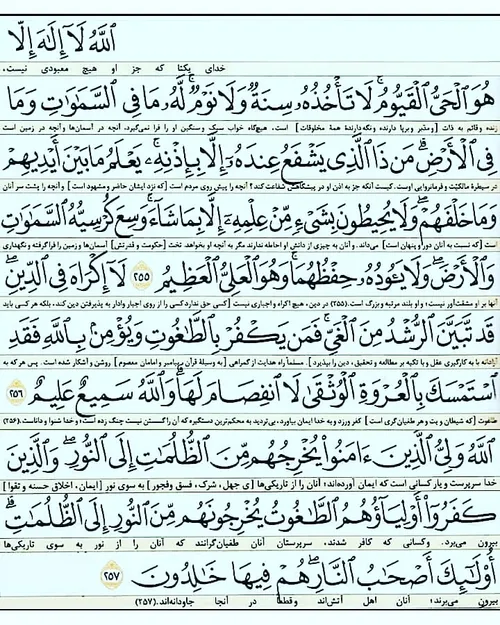 ٱللَّهُ لَآ إِلَٰهَ إِلَّا
خدای یکتا که جز او هیچ معبودی نیست،
هُوَ ٱلْحَىُّ ٱلْقَيُّومُ ۚ لَا تَأْخُذُهُۥ سِنَةٌ وَلَا نَوْمٌ ۚ لَّهُۥ مَا فِى ٱلسَّمَٰوَٰتِ وَمَا
زنده و قائم به ذات [و مدبّر و برپا دارنده و نگه دارندۀ همۀ مخلوقات] است، هیچ‌گاه خواب سبک و سنگین او را فرا نمی‌گیرد، آنچه در آسمان‌ها و آنچه در زمین است
فِى ٱلْأَرْضِ ۗ مَن ذَا ٱلَّذِى يَشْفَعُ عِندَهُۥٓ إِلَّا بِإِذْنِهِۦ ۚ يَعْلَمُ مَا بَيْنَ أَيْدِيهِمْ
در سیطرۀ مالکیّت و فرمانروایی اوست. کیست آنکه جز به اذن او در پیشگاهش شفاعت کند؟ آنچه را پیش روی مردم است [که نزد ایشان حاضر و مشهود است] و آنچه را پشت سر آنان
وَمَا خَلْفَهُمْ ۖ وَلَا يُحِيطُونَ بِشَىْءٍ مِّنْ عِلْمِهِۦٓ إِلَّا بِمَا شَآءَ ۚ وَسِعَ كُرْسِيُّهُ ٱلسَّمَٰوَٰتِ
است [که نسبت به آنان دور و پنهان است] می‌داند. و آنان به چیزی از دانش او احاطه ندارند مگر به آنچه او بخواهد. تخت [حکومت و قدرتش] آسمان‌ها و زمین را فراگرفته و نگهداری
وَٱلْأَرْضَ ۖ وَلَا يَـُٔودُهُۥ حِفْظُهُمَا ۚ وَهُوَ ٱلْعَلِىُّ ٱلْعَظِيمُ ٢٥٥ لَآ إِكْرَاهَ فِى ٱلدِّينِ ۖ
آنها بر او مشقّت‌آور نیست؛ و او بلند مرتبه و بزرگ است. (۲۵۵) در دین، هیچ اکراه و اجباری نیست [کسی حق ندارد کسی را از روی اجبار وادار به پذیرفتن دین کند، بلکه هر کسی باید
قَد تَّبَيَّنَ ٱلرُّشْدُ مِنَ ٱلْغَىِّ ۚ فَمَن يَكْفُرْ بِٱلطَّٰغُوتِ وَيُؤْمِنۢ بِٱللَّهِ فَقَدِ
آزادانه با به کارگیری عقل و با تکیه بر مطالعه و تحقیق، دین را بپذیرد]. مسلماً راه هدایت از گمراهی [به وسیلۀ قرآن، پیامبر و امامان معصوم] روشن و آشکار شده است. پس هر که به
ٱسْتَمْسَكَ بِٱلْعُرْوَةِ ٱلْوُثْقَىٰ لَا ٱنفِصَامَ لَهَا ۗ وَٱللَّهُ سَمِيعٌ عَلِيمٌ ٢٥٦
طاغوت [که شیطان و بت و هر طغیان‌گری است] کفر ورزد و به خدا ایمان بیاورد، بی‌تردید به محکم‌ترین دستگیره که آن را گسستن نیست چنگ زده است؛ و خدا شنوا و داناست. (۲۵۶)
ٱللَّهُ وَلِىُّ ٱلَّذِينَ ءَامَنُوا۟ يُخْرِجُهُم مِّنَ ٱلظُّلُمَٰتِ إِلَى ٱلنُّورِ ۖ وَٱلَّذِينَ
خدا سرپرست و یار کسانی است که ایمان آورده‌اند؛ آنان را از تاریکی‌ها [ی جهل، شرک، فسق و فجور] به سوی نور [ایمان، اخلاق حسنه و تقوا]
كَفَرُوٓا۟ أَوْلِيَآؤُهُمُ ٱلطَّٰغُوتُ يُخْرِجُونَهُم مِّنَ ٱلنُّورِ إِلَى ٱلظُّلُمَٰتِ ۗ
بیرون می‌برد. و کسانی که کافر شدند، سرپرستان آنان طغیان‌گرانند که آنان را از نور به سوی تاریکی‌ها
أُو۟لَٰٓئِكَ أَصْحَٰبُ ٱلنَّارِ ۖ هُمْ فِيهَا خَٰلِدُونَ ٢٥٧
بیرون می‌برند؛ آنان اهل آتش‌اند و قطعاً در آنجا جاودانه‌اند. (۲۵۷)